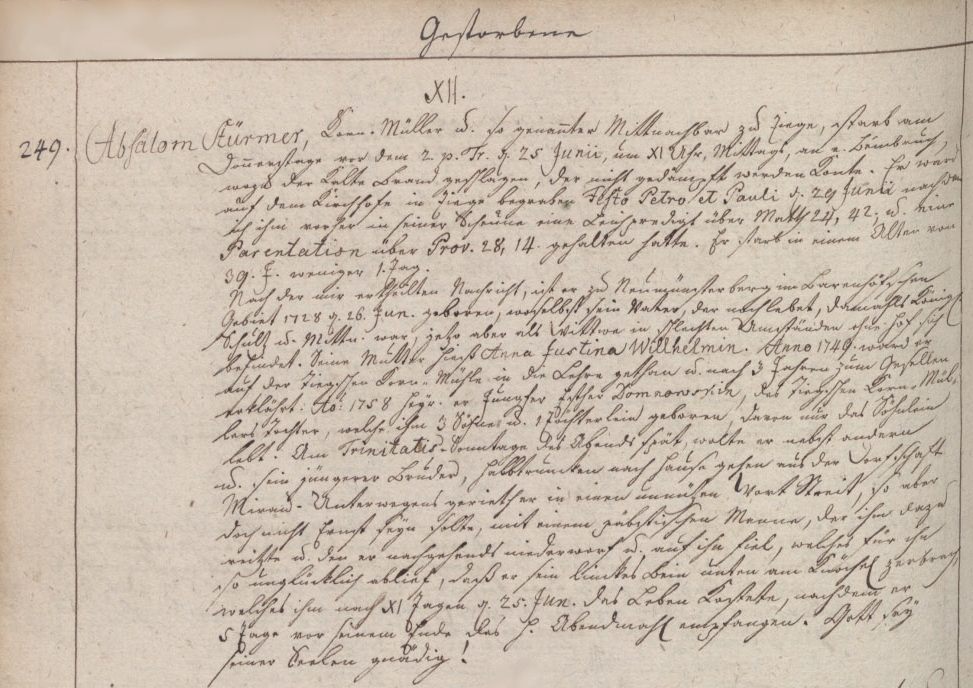 Gestorbene
XII.
249. Absalom Stürmer, Korn-Müller u. so genannter Mittnachbar zu Ziege, starb am
Donnerstage vor dem 2. p. Tr. d. 25 Junii, um XI Uhr, Mittags, an e. Beinbruch,
wozu der Kalte Brand geschlagen, der nicht gedämpft werden Konte. Er ward
auf dem Kirchhofe in Ziege begraben Festo Petro et Pauli d. 29 Junii nachdem
ich ihm vorher in seiner Scheune eine Leichpredigt über Matth 24, 42. u. eine
Parentation über Prov. 28, 14. gehalten hatte. Er starb in einem Alter von
39. J. weniger 1. Tag.
Nach der mir ertheilten Nachricht, ist er zu Neumünsterberg im Barenhöfschen
Gebiet 1728 d. 26. Jun. geboren, woselbst sein Vater, der noch lebet, damahls König
Schultz u. Mittn. war, jetzo aber als Wittwer in schlechten Umständen ohne Hof sich
befindet. Seine Mutter hieß Anna Justina Willhelmin. Anno 1749. ward er
auf der Ziegschen Korn-Mühle in die Lehre gethan u. nach 3 Jahren zum Gesellen
erklährt. Ao: 1758 heyr. er Jungfer Esther Domnowskin, des Ziegschen Korn-Mül-
lers Tochter, welche ihm 3 Söhne u. 1 Töchterlein geboren, davon nur das Söhnlein
lebt. Am Trinitatis-Sonntage des Abends spät, wolte er nebst andern
u. sein jüngerer Bruder, halbtruncken nach Hause gehen aus der Dorfschaft
Mirau. Unterwegens gerieth er in einen unnützen Wort Streit, so aber
doch nicht Ernst seyn solte, mit einem päbstischen Manne, der ihn dazu
reitzte u. den er nachgehends niederworf u. auf ihn fiel, welches für ihn
so unglücklich ablief, daß er sein linckes Bein unten am Knöchel zerbrach,
welches ihm nach XI Tagen d. 25. Jun. das Leben Kostete, nachdem er
5 Tage vor seinem Ende das H. Abendmahl empfangen. Gott sey
seiner Seelen gnädig!